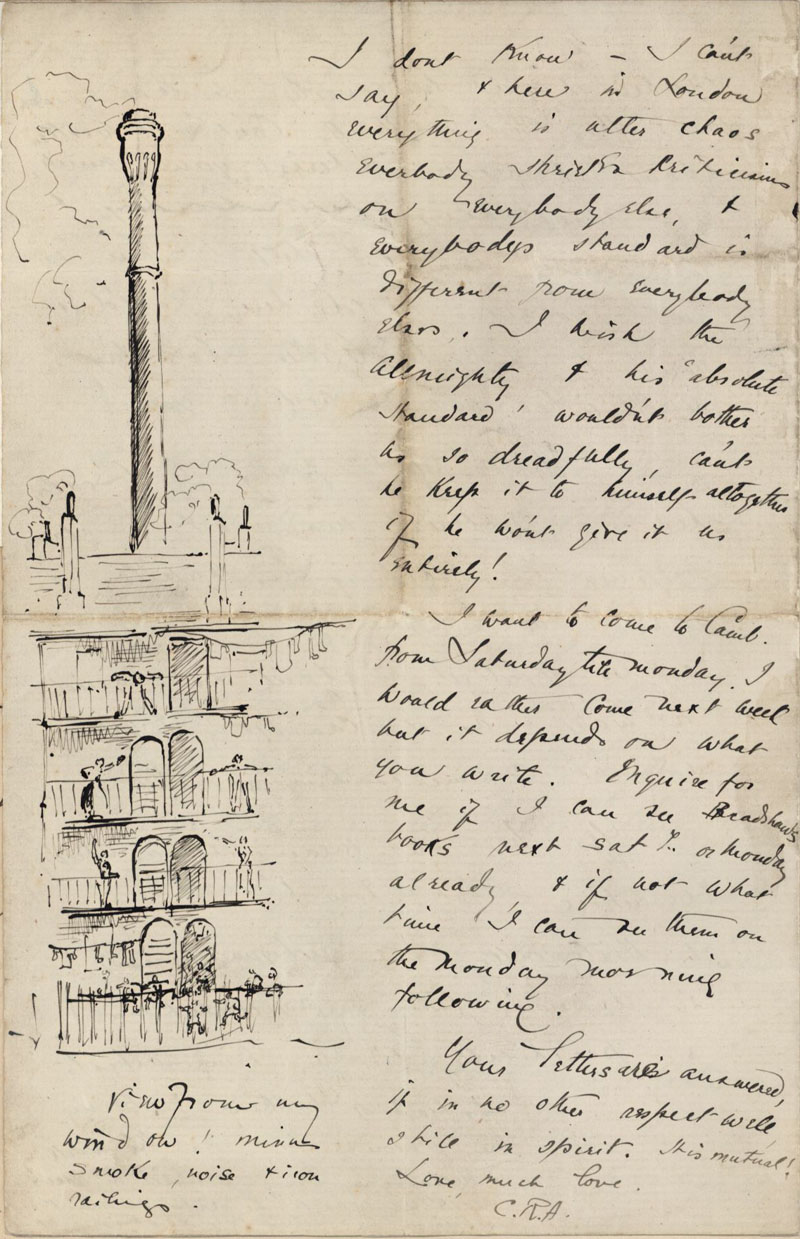 I dont know – I can't
say, & here in London
everything is utter chaos
Everbody shrieks criticisms
on everybody else, &
everybodys standard is
different from everybody
elses. I wish the
Allmighty & his 'absolute
standard' wouldn't bother
us so dreadfully, can't
he keep it to himself altogether
if he won't give it us
entirely!
I want to come to Camb.
from Saturday till monday. I
would rather come next week
but it depends on what
you write. Enquire for
me if I can see Bradshaws
books next sat y. or Monday
already & if not what
time I can see them on
the Monday morning
following.
Your letters are answered,
if in no other respect well
still in spirit. It is mutual!
Love, much love.
C.R.A.
View from my
window! minus
smoke, noise & iron
railings.